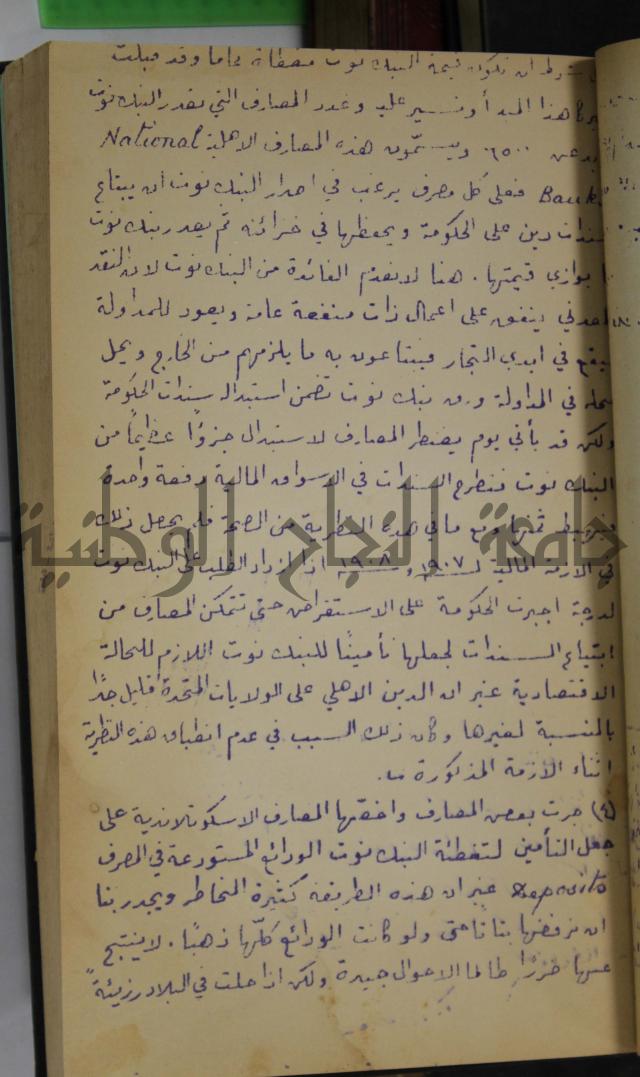 شرط ان تكون قيمة البنك نوت مغطاة تماما وقد قبلت
هذا المبدأ وتسير عليه وعدد المصارف التي تصدر البنك نوت
عن ٦٥٠٠ ويسمّون هذه المصارف الاهلية National
Banks فعلى كل مصرف يرغب في اصدار البنك نوت ان يبتاع
سندات دين على الحكومة ويحفظها في خزائنه ثم يصدر بنك نوت
يوازي قيمتها . هنا لا نعدم الفائدة من البنك نوت لان النقد
المعدني ينفق على اعمال ذات منفعة عامة ويعود للمداولة
فيقع في ايدي التجار فيبتاعون به ما يلزمهم من الخارج ويحل
محله في المداولة ورق بنك نوت تضمن استبداله سندات الحكومة
ولكن قد يأتي يوم يضطر المصارف لاستبدال جزءًا عظيمًا من
البنك نوت فتطرح السندات في الاسواق المالية دفعة واحدة
فيهبط ثمنها ومع ما في هذه النظرية من الصحة فلم يحصل ذلك
في الازمة المالية لـ ١٩٠٧ و ١٩٠٨ اذ ازداد الطلب على البنك نوت
لدرجة اجبرت الحكومة على الاستقراض حتى تتمكن المصارف من
ابتياع السندات لجعلها تأمينًا للبنك نوت اللازم للحالة
الاقتصادية غير ان الدين الاهلي على الولايات المتحدة قليل جدًا
بالنسبة لغيرها وكان ذلك السبب في عدم انطباق هذه النظرية
اثناء الازمة المذكورة
(٤) جرت بعض المصارف واخصّها المصارف الاسكوتلاندية على
جعل التأمين لتغطية البنك نوت الودائع المستودعة في المصرف
Deposits غير ان هذه الطريقة كثيرة المخاطر ويجدر بنا
ان نرفضها بتاتًا حتى ولو كانت الودائع كلّها ذهبًا . لا ينتج
عنها ضررًا طالما الاحوال جيدة ولكن اذا حلت في البلاد رزيئةً
جامعة النجاح الوطنية